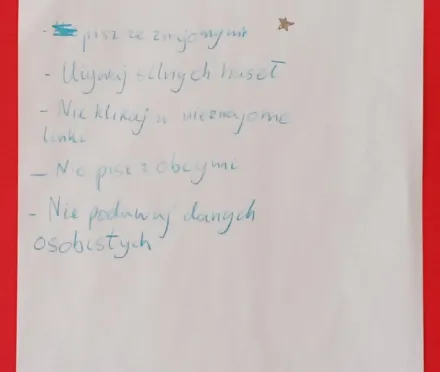 - pisz ze znajomymi
- Używaj silnych haseł
- Nie klikaj w nieznajome
linki
- Nie pisz z obcymi
- Nie podawaj danych
osobistych